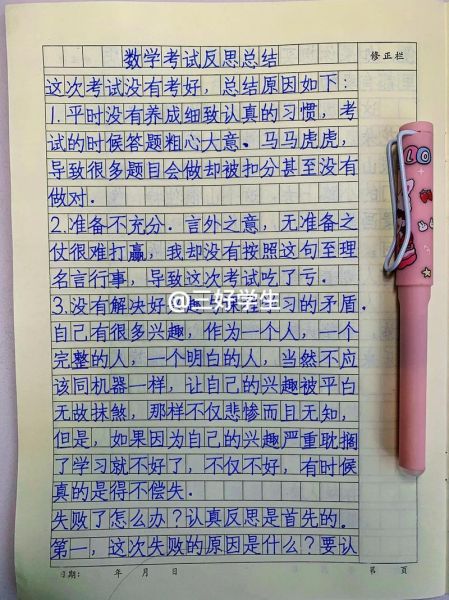 数学考试反思总结
修正栏
这次考试没有考好，总结原因如下：
1.平时没有养成细致认真的习惯，考
试的时候答题粗心大意、马马虎虎，
导致很多题目会做却被扣分甚至没有
做对．
2.准备不充分．言外之意，无准备之
仗很难打赢，我却没有按照这句至理
名言行事，导致这次考试吃了亏．
@三好学生
3.没有解决好习的矛盾．
自己有很多兴趣，作为一个人，一个
完整的人，一个明白的人，当然不应
该同机器一样，让自己的兴趣被平白
无故抹煞，那样不仅悲惨而且无知，
但是，如果因为自己的兴趣严重耽搁
了学习就不好了，不仅不好，有时候
真的是得不偿失．
失败了怎么办？认真反思是首先的．
第一，这次失败的原因是什么？要认
日期： 年 月 日 第 页